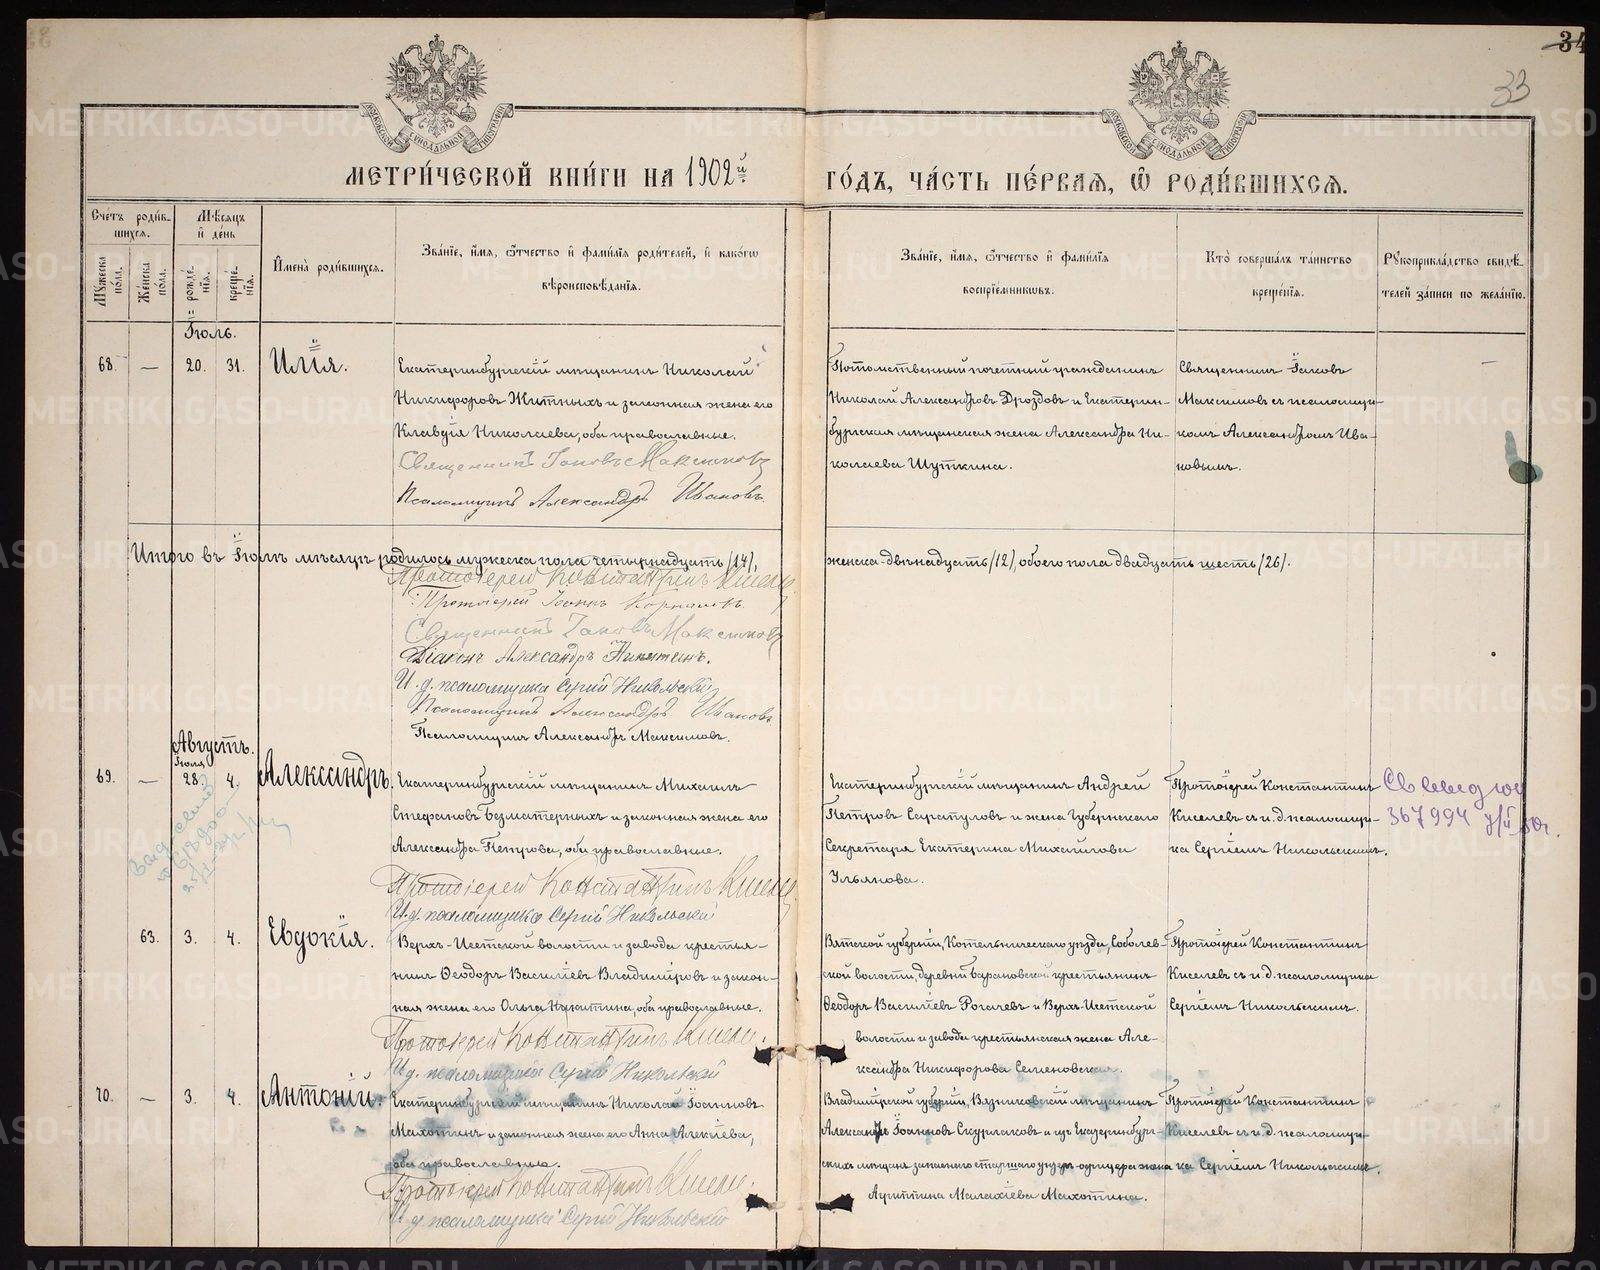 34
33
МЕТРИ́ЧЕСКОЙ КНИ́ГИ НА 1902й
ГО́ДЪ, ЧА́СТЬ ПЕ́РВАЯ, Ѿ РОДИ́ВШИХСЯ.
Сче́тъ роди́в-
шихся.
Мѣ́сяцъ
и҆ де́нь
Му́жеска по́ла.
Же́нска по́ла.
рожде́-
нїя.
креще́-
нїя.
И҆мена̀ роди́вшихся.
Зва́нїе, и҆́мя, ѻ҆́тчество и҆ фами́лїя роди́телей, и҆ како́гѡ
вѣроисповѣ́данїя.
Зва́нїе, и҆́мя, ѻ҆́тчество и҆ фами́лїя
воспрїе́мникѡвъ.
Кто̀ соверша́лъ та́инство
креще́нїя.
Рꙋкоприкла́дство свидѣ́-
телей за́писи по жела́нїю.
Іюль.
68. — 20. 31. Илія.
Екатеринбургскій мѣщанинъ Николай
Никифоровъ Житныхъ и законная жена его
Клавдія Николаева, оба православные.
Священникъ Іаковъ Максимовъ
Псаломщикъ Александръ Ивановъ.
Потомственный почетный гражданинъ
Николай Александровъ Дроздовъ и Екатерин-
бургская мѣщанская жена Александра Ни-
колаева Шуткина.
Священникъ Іаковъ
Максимовъ съ псаломщи-
комъ Александромъ Ива-
новымъ.
—
Итого въ Іюлѣ мѣсяцѣ родилось мужеска пола четырнадцать /14/,
женска-двѣнадцать /12/, обоего пола двадцать шесть /26/.
Протоіерей Константинъ Киселевъ
Протоіерей Іоаннъ
Священникъ Іаковъ Максимовъ
Діаконъ Александръ Никитинъ.
И. д. псаломщика Сергій Никольскій
Псаломщикъ Александръ Ивановъ
Псаломщикъ Александръ Максимовъ.
Августъ.
Іюля
69. — 28. 4. Александръ.
Екатеринбургскій мѣщанинъ Михаилъ
Стефановъ Безматерныхъ и законная жена его
Александра Петрова, оба православные.
Протоіерей Константинъ Киселевъ
И. д. псаломщика Сергій Никольскій
Екатеринбургскій мѣщанинъ Андрей
Петровъ Сарапуловъ и жена Губернскаго
Секретаря Екатерина Михайлова
Ульянова.
Протоіерей Константинъ
Киселевъ съ и. д. псаломщи-
ка Сергіемъ Никольскимъ.
367994
63. 3. 4. Евдокія.
Верхъ-Исетской волости и завода крестья-
нинъ Ѳеодоръ Василіевъ Владиміровъ и закон-
ная жена его Ольга Никитина, оба православные.
Протоіерей Константинъ Киселевъ.
И. д. псаломщика Сергій Никольскій
Вятской губерніи, Котельническаго уѣзда, Соболев-
ской волости, деревни Барановской крестьянинъ
Ѳеодоръ Василіевъ Рогалевъ и Верхъ-Исетской
волости и завода крестьянская жена Але-
ксандра Никифорова Семеновская.
Протоіерей Константинъ
Киселевъ съ и. д. псаломщика
Сергіемъ Никольскимъ.
70. — 3. 4. Антоній.
Екатеринбургскій мѣщанинъ Николай Іоанновъ
Махотинъ и законная жена его Анна Алексіева,
оба православные.
Протоіерей Константинъ Киселевъ.
И. д. псаломщика Сергій Никольскій
Владимірской губерніи, Вязниковскій мѣщанинъ
Александръ Іоанновъ Скурлаковъ и изъ Екатеринбург-
скихъ мѣщанъ запаснаго старшаго унтеръ-офицера жена
Агриппина Малахіева Махотина.
Протоіерей Константинъ
Киселевъ съ и. д. псаломщи-
ка Сергіемъ Никольскимъ.